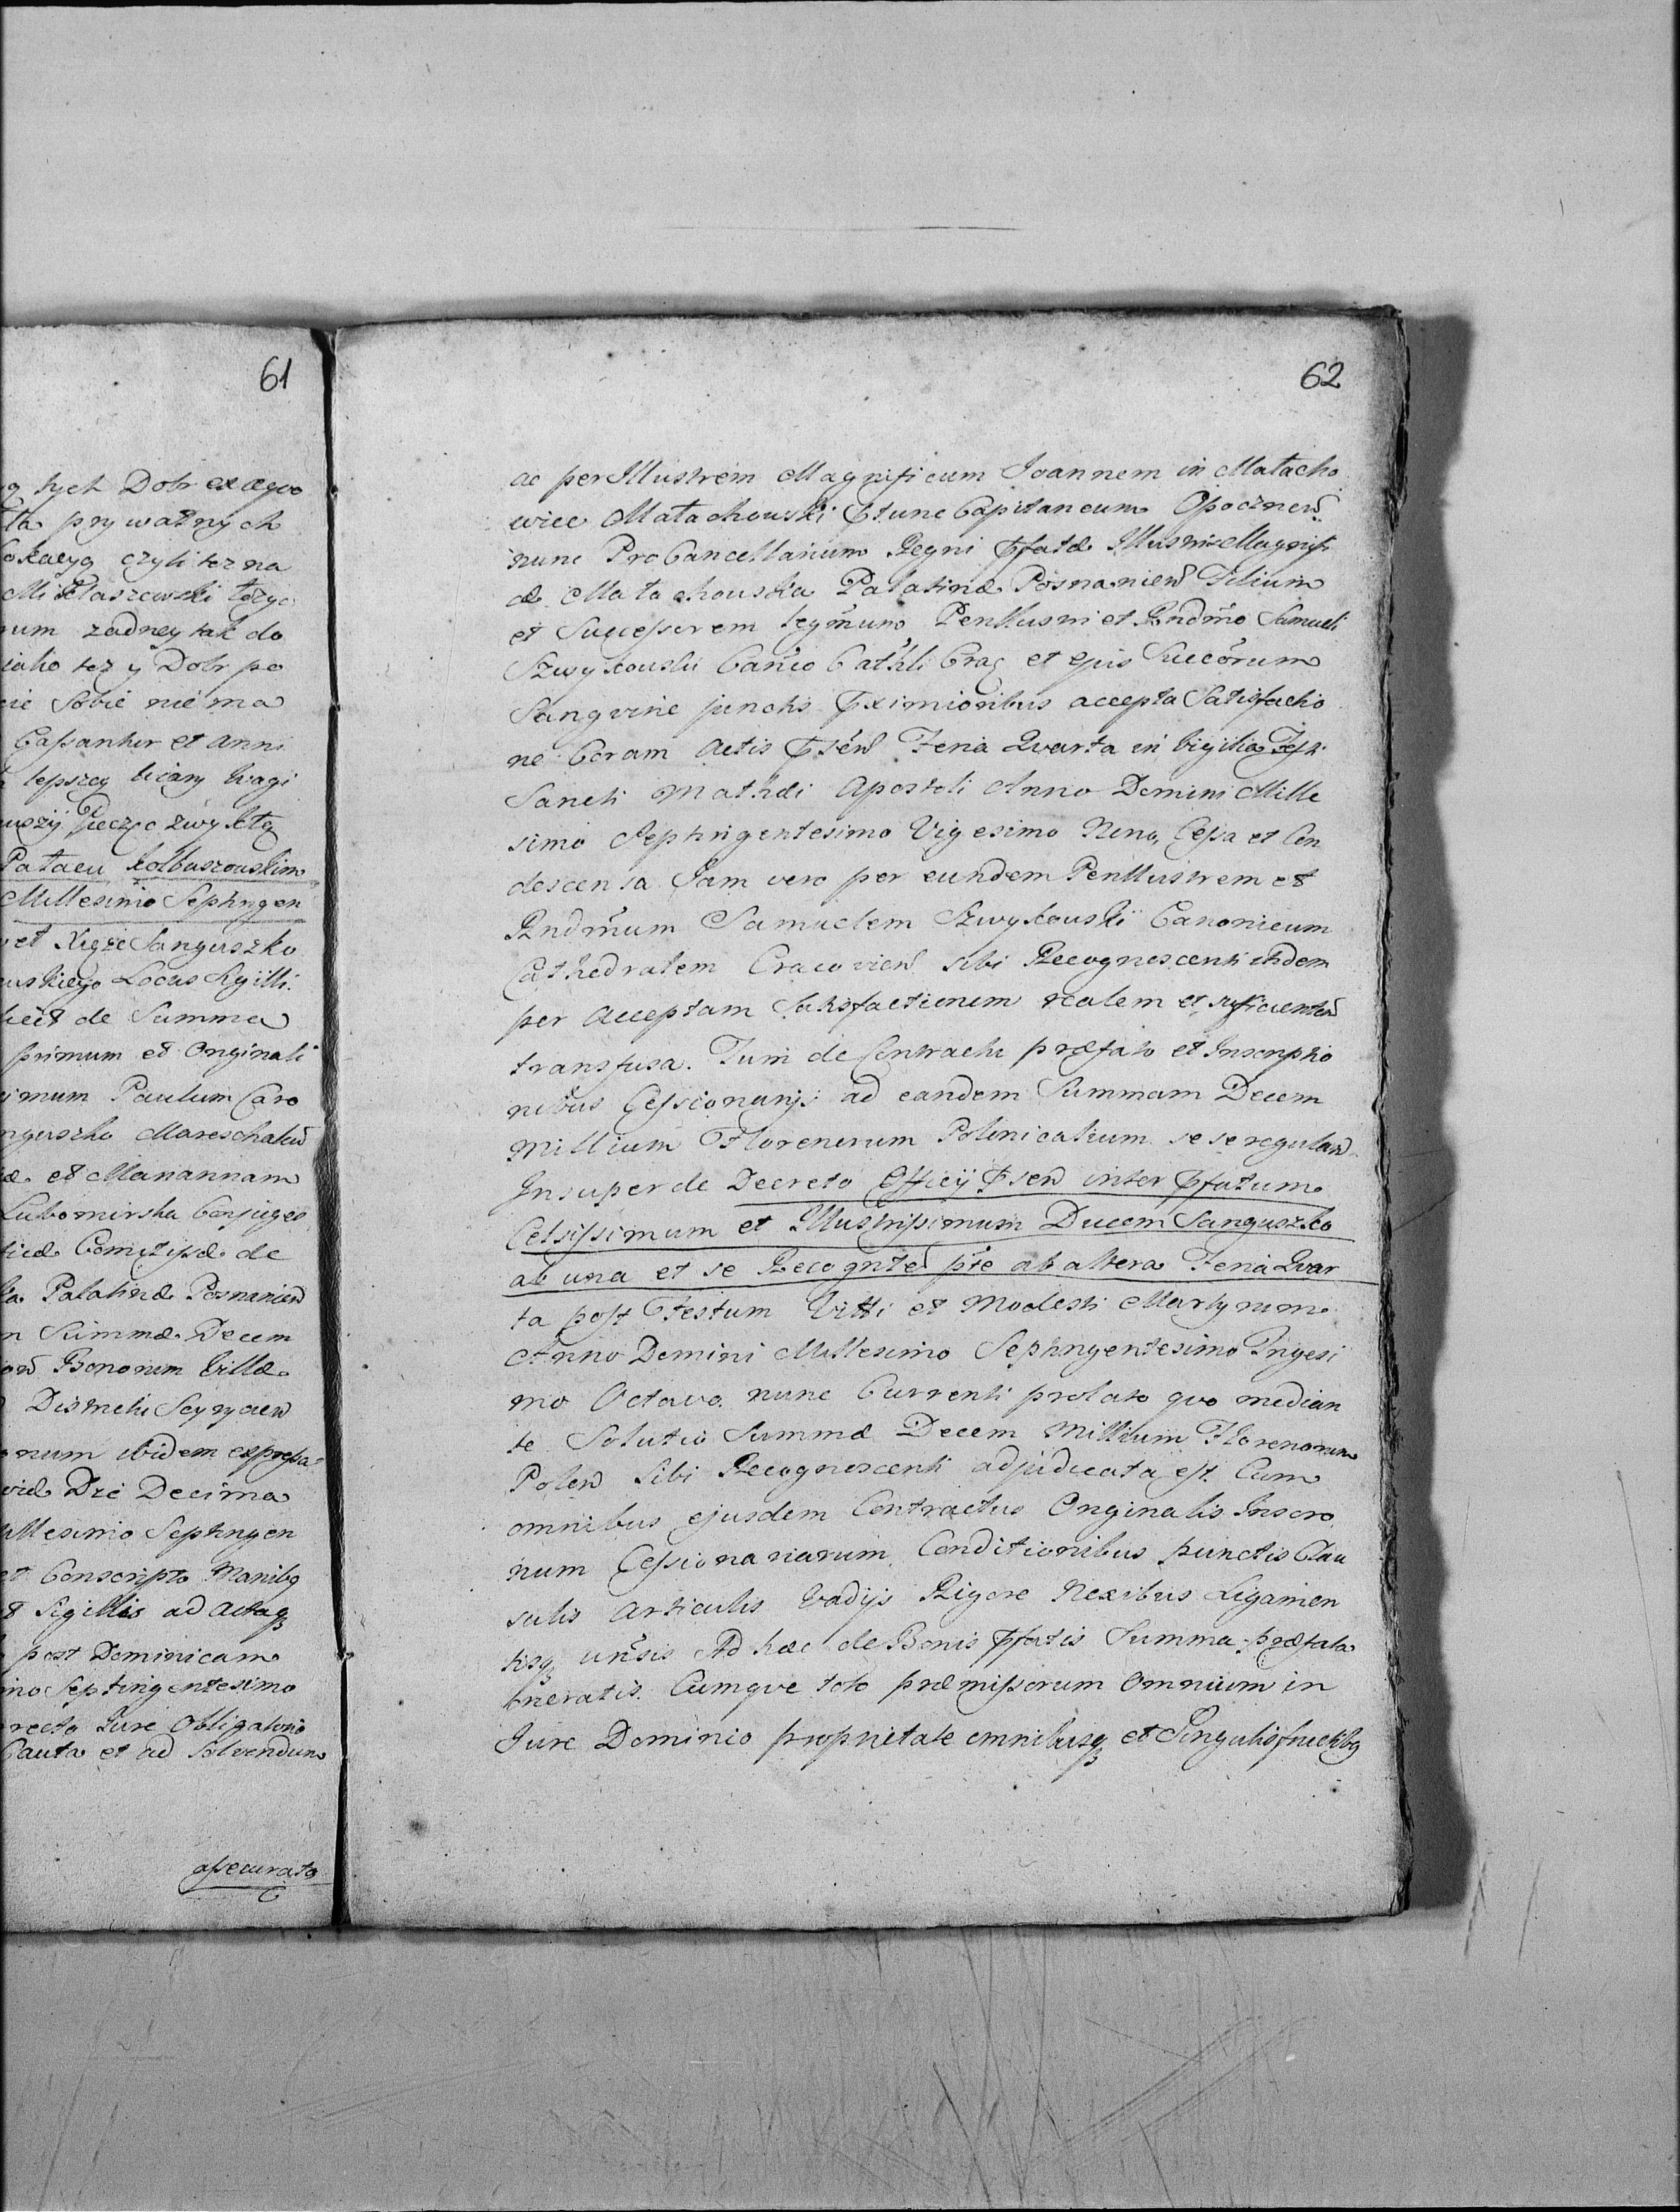 61
g tych Dobr ex aequo
ta prywatnych
czyli tez na
Błaszewski tozyc
num zadney tak do
iako tez y Dobr po
cie sobie nie ma
Cassantur et anni
lepszey wiary wagi
Pieczęc zwykłą
Pałacu Kolbuszowskim
Millesimo Septingen
et Xiąże Sanguszko
uskiego Locus Sigilli.
de Summa
primum et Originali
imum Paulum Caro
nguszko Mareschalcu
æ et Mariannam
Lubomirska Conjuges
Comitissæ de
Palatinæ Posnanien
n Summæ Decem
Bonorum Villæ
Districtu Scyrycen
num ibidem expressa
Die Decima
Millesimo Septingen
et Conscripto Manibq
Sigillis ad Actaq
post Dominicam
mo Septingentesimo
recto Jure Obligatorio
Cauta et ad Solvendum
assecurato
62
ac per Illustrem Magnificum Joannem in Małacho
wice Małachowski ptunc Capitaneum Opocznen
nunc ProCancellarium Regni pfatæ Illustris Magnifi
cæ Małachowska Palatinæ Posnanien Filium
et Successorem legmum Perillustri et Rndmo Samueli
Szwykowski Canco Cathli Crac et ejus Succorum
Sangvine junctis pximioribus accepta Satisfactio
ne Coram Actis psen Feria Qvarta in Vigilia Festi
Sancti Mathæi Apostoli Anno Domini Mille
simo Septingentesimo Vigesimo Nono, Cessa et Con
descensa Jam vero per eundem Perillustrem et
Rndmum Samuelem Szwykowski Canonicum
Cathedralem Cracovien sibi Recognoscenti itidem
per acceptam Satisfactionem realem et sufficienten
transfusa. Tum de Contractu præfato et Inscriptio
nibus Cessionarijs ad eandem Summam Decem
Millium Florenorum Polonicalium se se regulan
Insuper de Decreto Officij psen inter pfatum
Celsissimum et Illustrissimum Ducem Sanguszko
ab una et se Recognten pte ab altera Feria Qvar
ta post Festum Vitti et Modesti Martyrum
Anno Domini Millesimo Septingentesimo Trigesi
mo Octavo nunc Currenti prolato qvo median
te Solutio Summæ Decem Millium Florenorum
Polon Sibi Recognoscenti adjudicata est. Cum
omnibus ejusdem Contractus Originalis Inscro
num Cessionariarum Conditionibus punctis Clau
sulis Articulis Vadijs Rigore Nexibus Ligamen
tisq unsis Ad hæc de Bonis pfatis Summa præfata
Oneratis. Cumqve toto præmissorum Omnium in
Jure Dominio proprietate omnibusq et Singulis fructibq